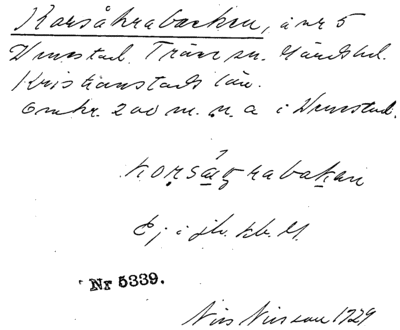 Korsåkrabacken, å nr 5
Vemstad. Träne sn. Gärds hd.
Kristianstads län.
Omkr. 200 m. n. a i Vemstad.
kors̥ågrabakan
Ej i jb. kb. M.
Nr 5339.
Nils Nilsson 1929